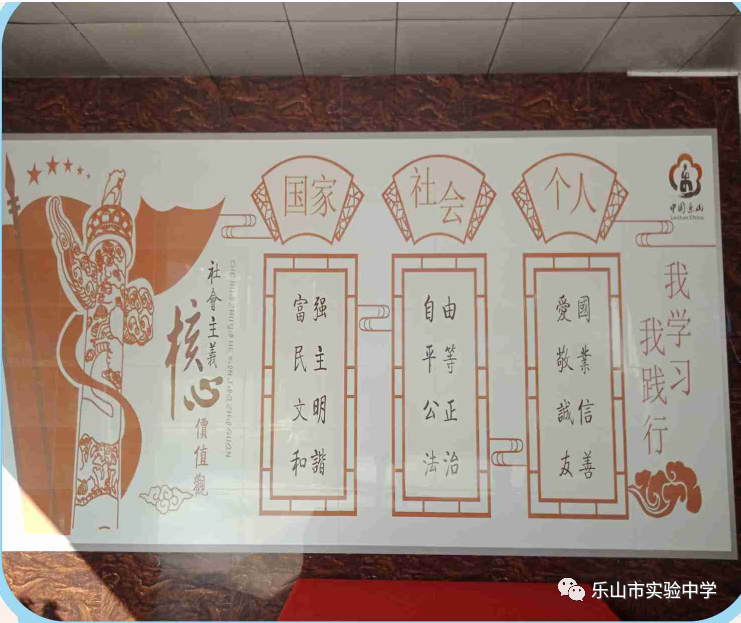 社會主義
核心
價值觀
国家
富强
民主
文明
和諧
社会
自由
平等
公正
法治
个人
愛國
敬業
誠信
友善
中国乐山
Leshan China
我学习
我践行
乐山市实验中学